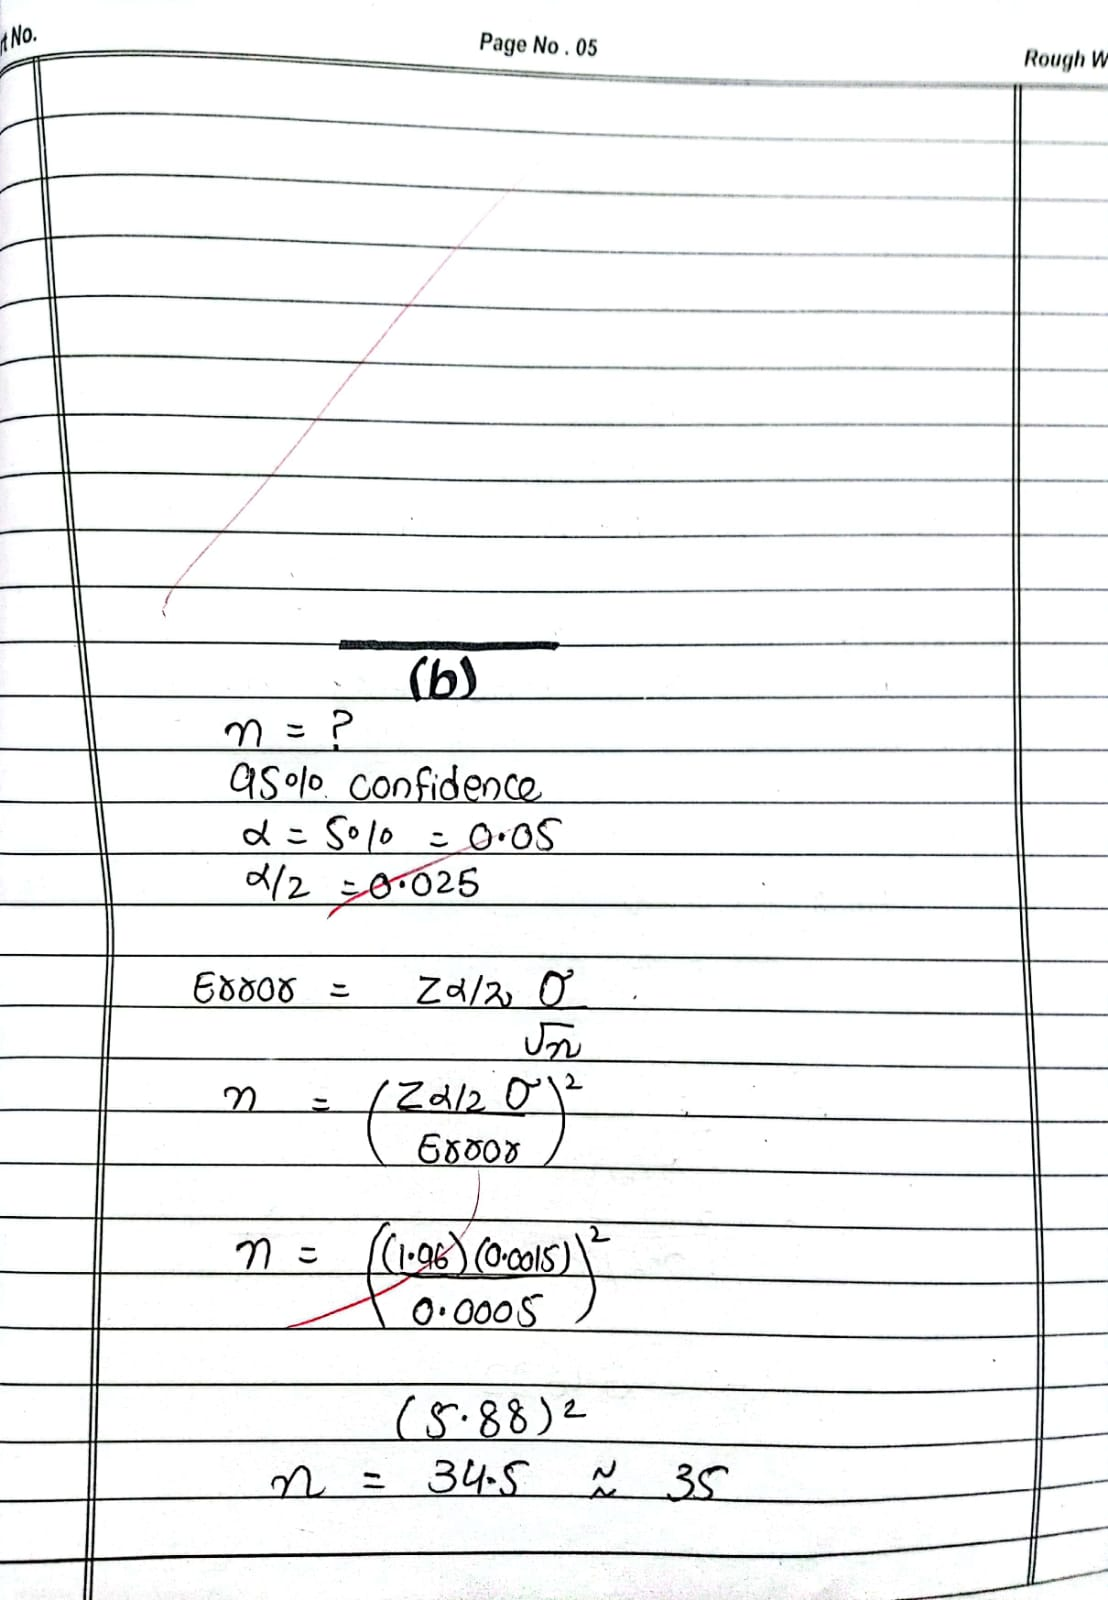 t No.
Page No . 05
Rough W
(b)
n = ?
95% confidence
α = 5% = 0.05
α/2 = 0.025
Error = Zα/2 σ
√n
n = (Zα/2 σ)²
Error
n = ((1.96)(0.0015))²
0.0005
(5.88)²
n = 34.5 ≈ 35